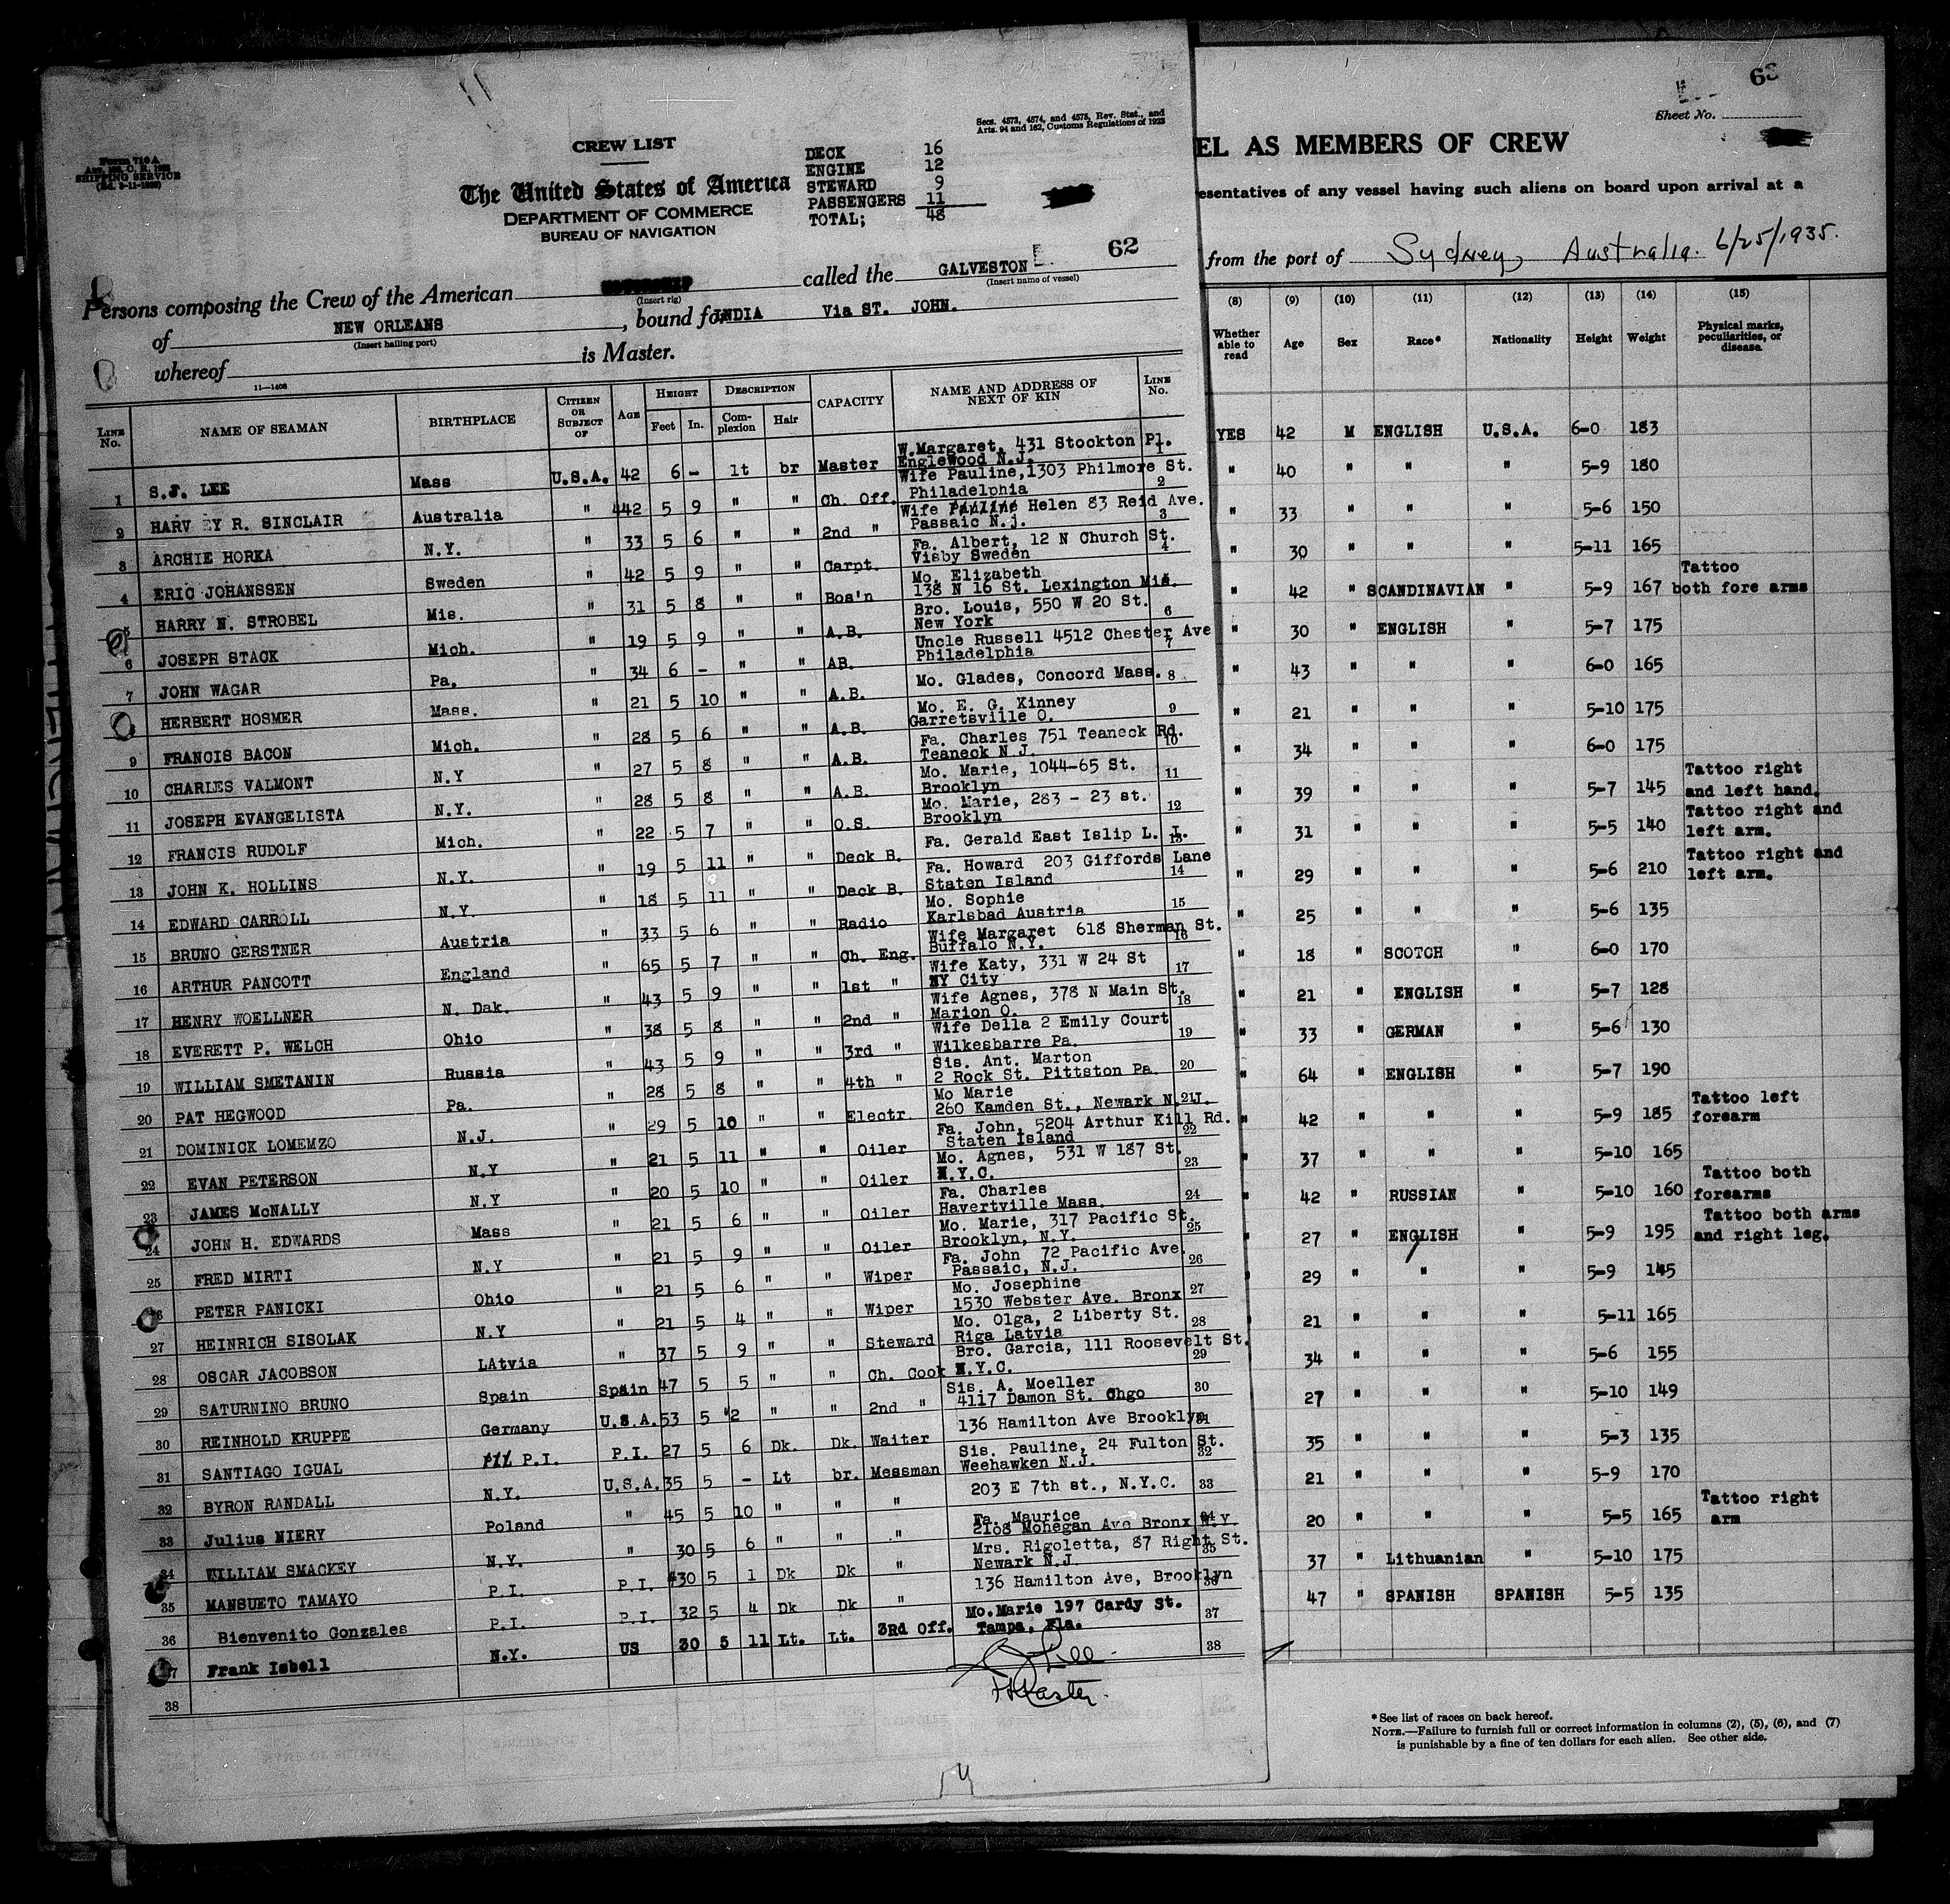 62
Secs. 4573, 4574, and 4575, Rev. Stat., and
Arts. 94 and 162, Customs Regulations of 1923
Form 710 A
SHIPPING SERVICE
CREW LIST
The United States of America
DEPARTMENT OF COMMERCE
BUREAU OF NAVIGATION
DECK 16
ENGINE 12
STEWARD 9
PASSENGERS 11
TOTAL; 48
Persons composing the Crew of the American called the GALVESTON
(Insert rig) (Insert name of vessel)
of NEW ORLEANS, bound for INDIA Via ST. JOHN.
(Insert hailing port)
whereof is Master.
11—1408
LINE No. NAME OF SEAMAN BIRTHPLACE CITIZEN OR SUBJECT OF AGE HEIGHT Feet In. DESCRIPTION Complexion Hair CAPACITY NAME AND ADDRESS OF NEXT OF KIN LINE No.
1 S.J. LEE Mass U.S.A. 42 6 - lt br Master W.Margaret, 431 Stockton Pl. Englewood N.J. 1
2 HARV EY R. SINCLAIR Australia " 42 5 9 " " Ch. Off. Wife Pauline, 1303 Philmore St. Philadelphia 2
3 ARCHIE HORKA N.Y. " 33 5 6 " " 2nd " Wife Helen 83 Reid Ave. Passaic N.j. 3
4 ERIC JOHANSSEN Sweden " 42 5 9 " " Carpt. Fa. Albert, 12 N Church St. Visby Sweden 4
5 HARRY N. STROBEL Mis. " 31 5 8 " " Bos'n Mo. Elizabeth 138 N 16 St. Lexington Mis.
6 JOSEPH STACK Mich. " 19 5 9 " " A.B. Bro. Louis, 550 W 20 St. New York 6
7 JOHN WAGAR Pa. " 34 6 - " " AB. Uncle Russell 4512 Chester Ave Philadelphia 7
HERBERT HOSMER Mass. " 21 5 10 " " A.B. Mo. Glades, Concord Mass. 8
9 FRANCIS BACON Mich. " 28 5 6 " " A.B. Mo. E. G. Kinney Garretsville O. 9
10 CHARLES VALMONT N.Y " 27 5 8 " " A.B. Fa. Charles 751 Teaneck Rd. Teaneck N.J. 10
11 JOSEPH EVANGELISTA N.Y. " 28 5 8 " " A.B. Mo. Marie, 1044-65 St. Brooklyn 11
12 FRANCIS RUDOLF Mich. " 22 5 7 " " O.S. Mo. Marie, 283 - 23 st. Brooklyn 12
13 JOHN K. HOLLINS N.Y. " 19 5 11 " " Deck B. Fa. Gerald East Islip L. I. 13
14 EDWARD CARROLL N.Y. " 18 5 11 " " Deck B. Fa. Howard 203 Giffords Lane Staten Island 14
15 BRUNO GERSTNER Austria " 33 5 6 " " Radio Mo. Sophie Karlsbad Austria 15
16 ARTHUR PANCOTT England " 65 5 7 " " Ch. Eng. Wife Margaret 618 Sherman St. Buffalo N.Y. 16
17 HENRY WOELLNER N. Dak. " 43 5 9 " " 1st " Wife Katy, 331 W 24 St NY City 17
18 EVERETT P. WELCH Ohio " 38 5 8 " " 2nd " Wife Agnes, 378 N Main St. Marion O. 18
19 WILLIAM SMETANIN Russia " 43 5 9 " " 3rd " Wife Della 2 Emily Court Wilkesbarre Pa. 19
20 PAT HEGWOOD Pa. " 28 5 8 " " 4th " Sis. Ant. Marton 2 Rock St. Pittston Pa. 20
21 DOMINICK LOMEMZO N.J. " 29 5 10 " " Electr. Mo Marie 260 Kamden St., Newark N.J. 21
22 EVAN PETERSON N.Y " 21 5 11 " " Oiler Fa. John, 5204 Arthur Kill Rd. Staten Island 22
23 JAMES McNALLY N.Y " 20 5 10 " " Oiler Mo. Agnes, 531 W 187 St. N.Y.C. 23
24 JOHN H. EDWARDS Mass " 21 5 6 " " Oiler Fa. Charles Havertville Mass. 24
25 FRED MIRTI N.Y " 21 5 9 " " Oiler Mo. Marie, 317 Pacific St. Brooklyn, N.Y. 25
26 PETER PANICKI Ohio " 21 5 6 " " Wiper Fa. John 72 Pacific Ave. Passaic, N.J. 26
27 HEINRICH SISOLAK N.Y " 21 5 4 " " Wiper Mo. Josephine 1530 Webster Ave. Bronx 27
28 OSCAR JACOBSON LAtvia " 37 5 9 " " Steward Mo. Olga, 2 Liberty St. Riga Latvia 28
29 SATURNINO BRUNO Spain Spain 47 5 5 " " Ch. Cook Bro. Garcia, 111 Roosevelt St. N.Y.C. 29
30 REINHOLD KRUPPE Germany U.S.A. 53 5 2 " " 2nd " Sis. A. Moeller 4117 Damon St. Chgo 30
31 SANTIAGO IGUAL P.I. P.I. 27 5 6 Dk. Dk. Waiter 136 Hamilton Ave Brooklyn 31
32 BYRON RANDALL N.Y. U.S.A. 35 5 - Lt br. Messman Sis. Pauline, 24 Fulton St. Weehawken N.J. 32
33 Julius NIERY Poland " 45 5 10 " " " 203 E 7th st., N.Y.C. 33
34 WILLIAM SMACKEY N.Y. " 30 5 6 " " " Fa. Maurice 2108 Mohegan Ave Bronx N.Y. 34
35 MANSUETO TAMAYO P.I. P.I. 30 5 1 Dk Dk " Mrs. Rigoletta, 87 Right St. Newark N.J. 35
36 Bienvenito Gonzales P.I. P.I. 32 5 4 Dk Dk " 136 Hamilton Ave, Brooklyn 36
37 Frank Isbell N.Y. US 30 5 11 Lt. Lt. 3Rd Off. Mo.Marie 197 Cardy St. Tampa, Fla. 37
38 38
S J Lee
Master.
Sheet No.
EL AS MEMBERS OF CREW
esentatives of any vessel having such aliens on board upon arrival at a
from the port of Sydney, Australia. 6/25/1935.
(8) (9) (10) (11) (12) (13) (14) (15)
Whether able to read Age Sex Race* Nationality Height Weight Physical marks, peculiarities, or disease
YES 42 M ENGLISH U.S.A. 6-0 183
" 40 " " " 5-9 180
" 33 " " " 5-6 150
" 30 " " " 5-11 165
" 42 " SCANDINAVIAN " 5-9 167 Tattoo both fore arms
" 30 " ENGLISH " 5-7 175
" 43 " " " 6-0 165
" 21 " " " 5-10 175
" 34 " " " 6-0 175
" 39 " " " 5-7 145 Tattoo right and left hand.
" 31 " " " 5-5 140 Tattoo right and left arm.
" 29 " " " 5-6 210 Tattoo right and left arm.
" 25 " " " 5-6 135
" 18 " SCOTCH " 6-0 170
" 21 " ENGLISH " 5-7 128
" 33 " GERMAN " 5-6 130
" 64 " ENGLISH " 5-7 190
" 42 " " " 5-9 185 Tattoo left forearm
" 37 " " " 5-10 165
" 42 " RUSSIAN " 5-10 160 Tattoo both forearms
" 27 " ENGLISH " 5-9 195 Tattoo both arms and right leg.
" 29 " " " 5-9 145
" 21 " " " 5-11 165
" 34 " " " 5-6 155
27 " " " 5-10 149
35 " " " 5-3 135
21 " " " 5-9 170
20 " " " 5-5 165 Tattoo right arm
37 " Lithuanian " 5-10 175
47 " SPANISH SPANISH 5-5 135
* See list of races on back hereof.
NOTE.—Failure to furnish full or correct information in columns (2), (5), (6), and (7)
is punishable by a fine of ten dollars for each alien. See other side.